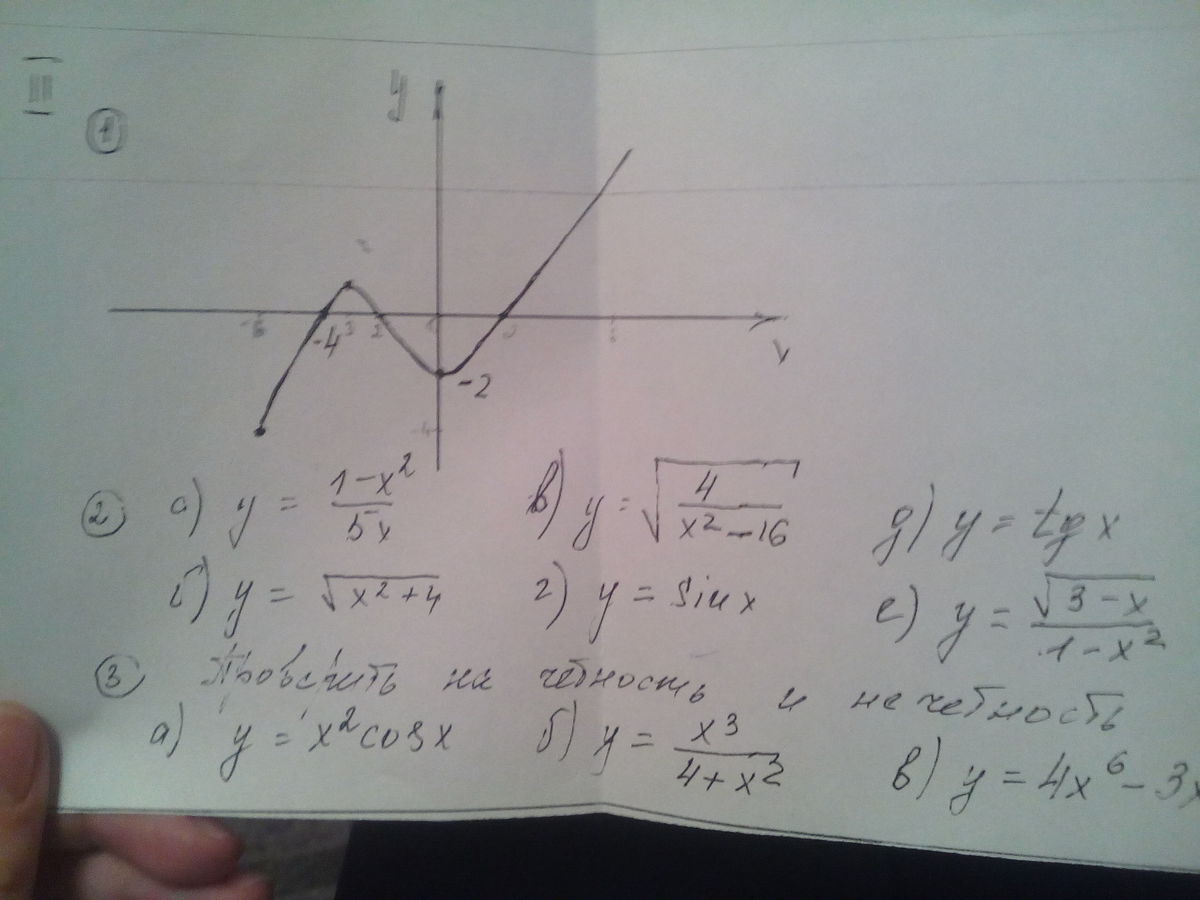 III
1
y
-4
-2
-4
x
2 а) y = (1-x²)/(5x) в) y = √(4/(x²-16)) д) y = tg x
б) y = √(x²+4) г) y = sin x е) y = √(3-x)/(1-x²)
3 Проверить на четность и нечетность
а) y = x²cosx б) y = x³/(4+x²) в) y = 4x⁶-3x